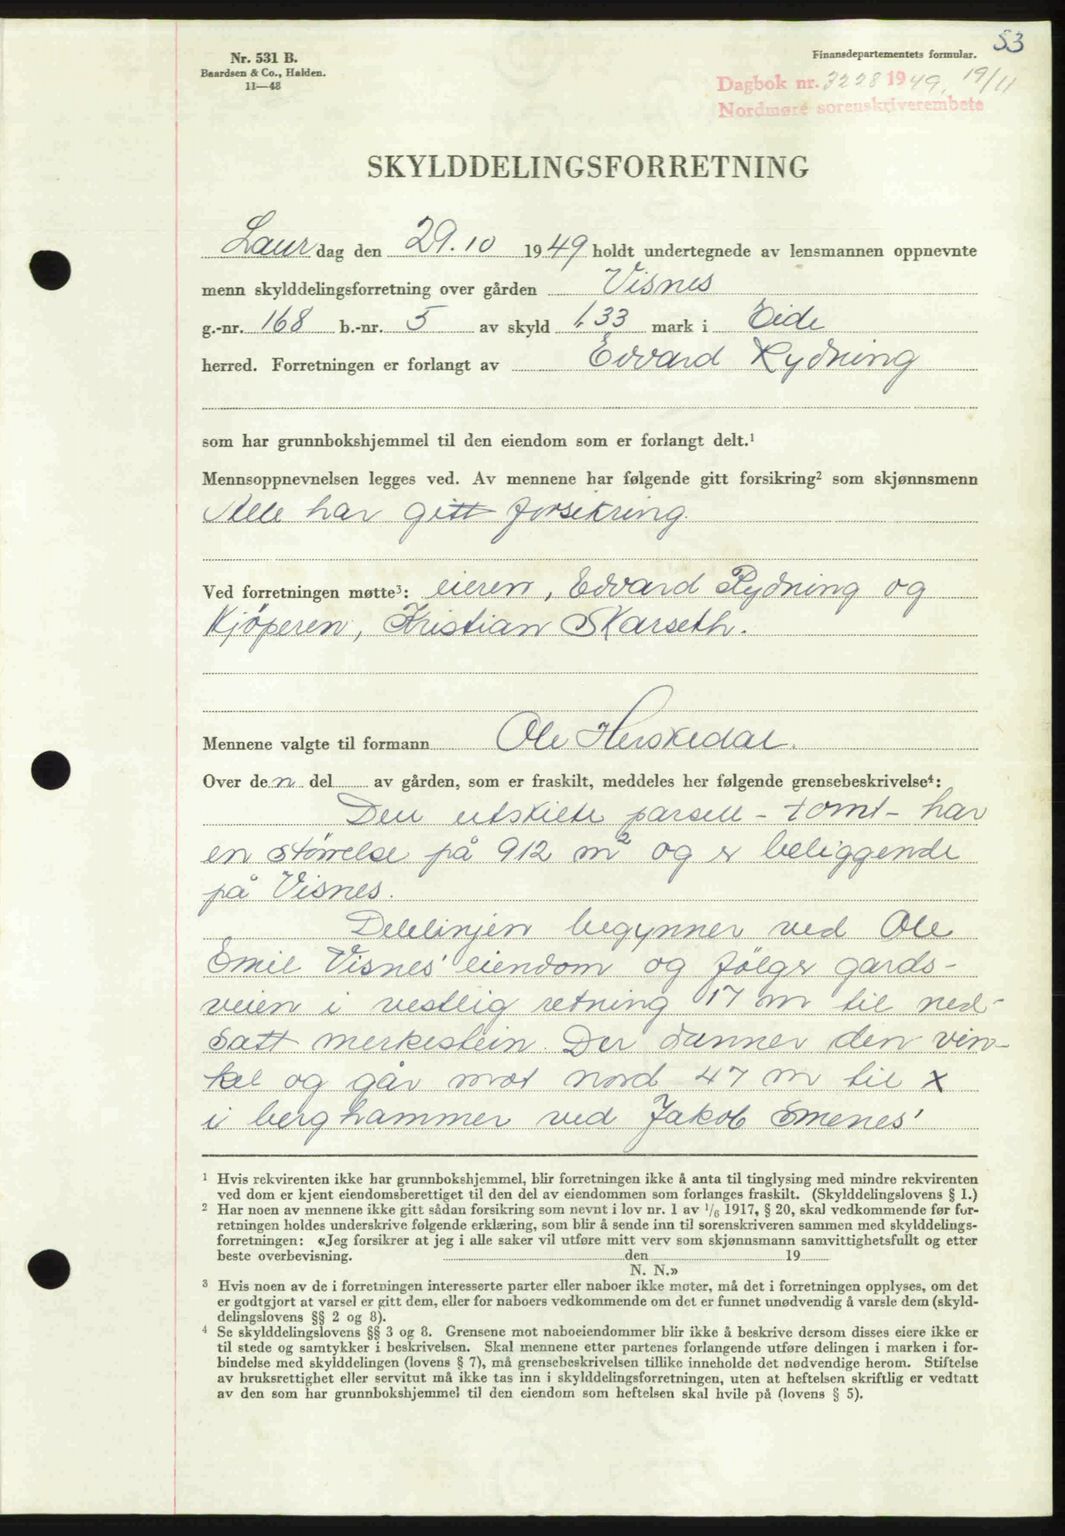 53
Nr. 531 B.
Baardsen & Co., Halden.
11—48
Finansdepartementets formular.
Dagbok nr. 3228 1949, 19/11
Nordmøre sorenskriverembete
SKYLDDELINGSFORRETNING
Laurdag den 29.10 1949 holdt undertegnede av lensmannen oppnevnte
menn skylddelingsforretning over gården Visnes
g.-nr. 168 b.-nr. 5 av skyld 1.33 mark i Eide
herred. Forretningen er forlangt av Edvard Rydning
som har grunnbokshjemmel til den eiendom som er forlangt delt.¹
Mennsoppnevnelsen legges ved. Av mennene har følgende gitt forsikring² som skjønnsmenn
Alle har gitt forsikring.
Ved forretningen møtte³: eieren, Edvard Rydning og
Kjöperen, Kristian Skarseth.
Mennene valgte til formann Ole Herskedal.
Over den del av gården, som er fraskilt, meddeles her følgende grensebeskrivelse⁴:
Den utskilte parsell - tomt - har
en størrelse på 912 m² og er beliggende
på Visnes.
Delelinjen begynner ved Ole
Emil Visnes' eiendom og følger gards-
veien i vestlig retning 17 m til ned-
satt merkestein. Der danner den vin-
kel og går mot nord 47 m til x
i berghammer ved Jakob Smenes'
¹ Hvis rekvirenten ikke har grunnbokshjemmel, blir forretningen ikke å anta til tinglysing med mindre rekvirenten
ved dom er kjent eiendomsberettiget til den del av eiendommen som forlanges fraskilt. (Skylddelingslovens § 1.)
² Har noen av mennene ikke gitt sådan forsikring som nevnt i lov nr. 1 av 1/6 1917, § 20, skal vedkommende før for-
retningen holdes underskrive følgende erklæring, som blir å sende inn til sorenskriveren sammen med skylddelings-
forretningen: «Jeg forsikrer at jeg i alle saker vil utføre mitt verv som skjønnsmann samvittighetsfullt og etter
beste overbevisning. den 19
N. N.»
³ Hvis noen av de i forretningen interesserte parter eller naboer ikke møter, må det i forretningen opplyses, om det
er godtgjort at varsel er gitt dem, eller for naboers vedkommende om det er funnet unødvendig å varsle dem (skyld-
delingslovens §§ 2 og 8).
⁴ Se skylddelingslovens §§ 3 og 8. Grensene mot naboeiendommer blir ikke å beskrive dersom disses eiere ikke er
til stede og samtykker i beskrivelsen. Skal mennene etter partenes forlangende utføre delingen i marken i for-
bindelse med skylddelingen (lovens § 7), må grensebeskrivelsen tillike inneholde det nødvendige herom. Stiftelse
av bruksrettighet eller servitut må ikke tas inn i skylddelingsforretningen, uten at heftelsen skriftlig er vedtatt
av den som har grunnbokshjemmel til den eiendom som heftelsen skal hvile på (lovens § 5).